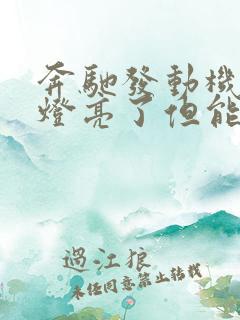 奔馳發動機
燈亮了但能
過江狼
未經同意禁止轉載